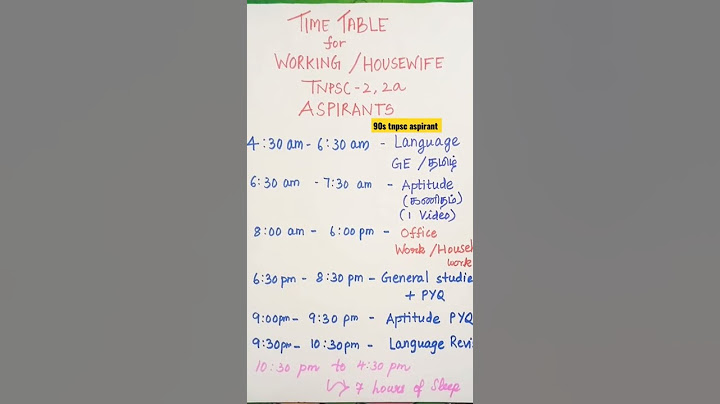 TIME TABLE
for
WORKING / HOUSEWIFE
TNPSC-2, 2a
ASPIRANTS
90s tnpsc aspirant
4:30 am - 6:30 am - Language
GE / தமிழ்
6:30 am - 7:30 am - Aptitude
(கணிதம்)
(1 Video)
8:00 am - 6:00 pm - Office
Work / Househ
work
6:30 pm - 8:30 pm - General studie
+ PYQ
9:00pm - 9:30 pm - Aptitude PYQ
9:30pm - 10:30pm - Language Revi
10:30 pm to 4:30 pm
↳ 7 hours of sleep